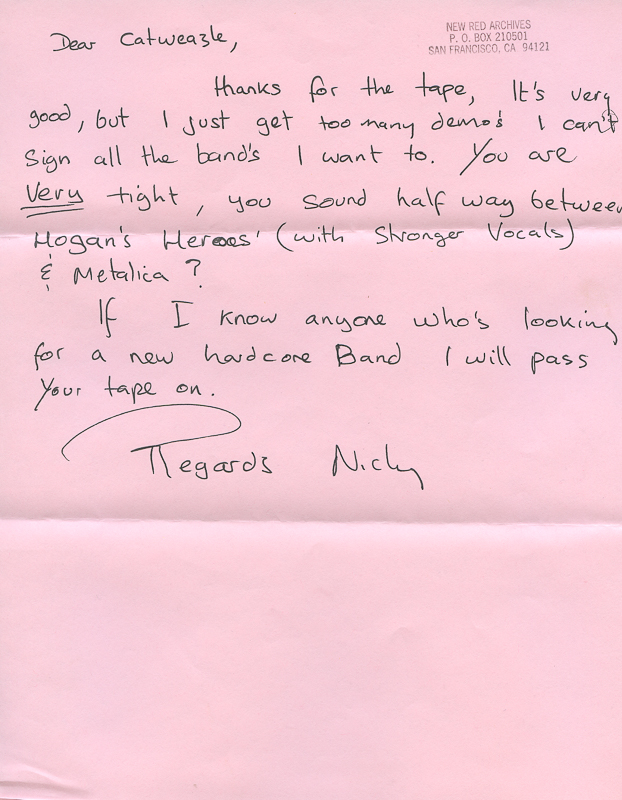 NEW RED ARCHIVES
P. O. BOX 210501
SAN FRANCISCO, CA 94121
Dear Catweazle,
thanks for the tape, It's very
good, but I just get too many demo's I can't
Sign all the band's I want to. You are
Very tight, you sound half way between
Hogan's Heroes' (with Stronger Vocals)
& Metalica ?
If I know anyone who's looking
for a new hardcore Band I will pass
Your tape on.
Regards Nicky